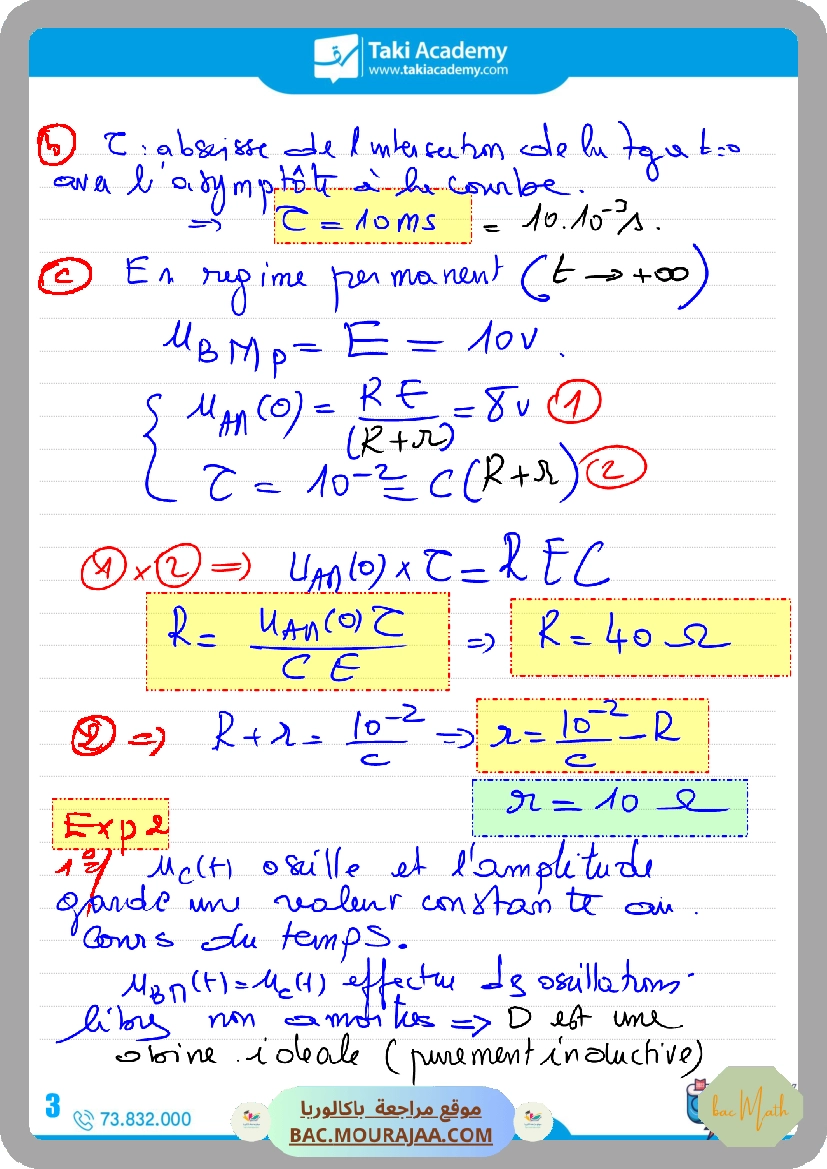 Taki Academy
www.takiacademy.com
b) τ : abscisse de l'intersection de la tg a t=0
avec l'asymptôte à la courbe.
=> τ = 10 ms = 10.10⁻³ s.
c) En regime permanent (t → +∞)
u_BMp = E = 10 v.
{ u_AM(0) = RE/(R+r) = 8v ①
τ = 10⁻² = C(R+r) ②
① × ② => u_AM(0) × τ = REC
R = u_AM(0) τ / C E => R = 40 Ω
② => R + r = 10⁻²/C => r = 10⁻²/C - R
r = 10 Ω
Exp 2
1°/ u_C(t) oscille et l'amplitude
garde une valeur constante au
cours du temps.
u_BM(t) = u_C(t) effectue des oscillations
libres non amorties => D est une
obine ideale (purement inductive)
3
73.832.000
موقع مراجعة باكالوريا
BAC.MOURAJAA.COM
bac Math